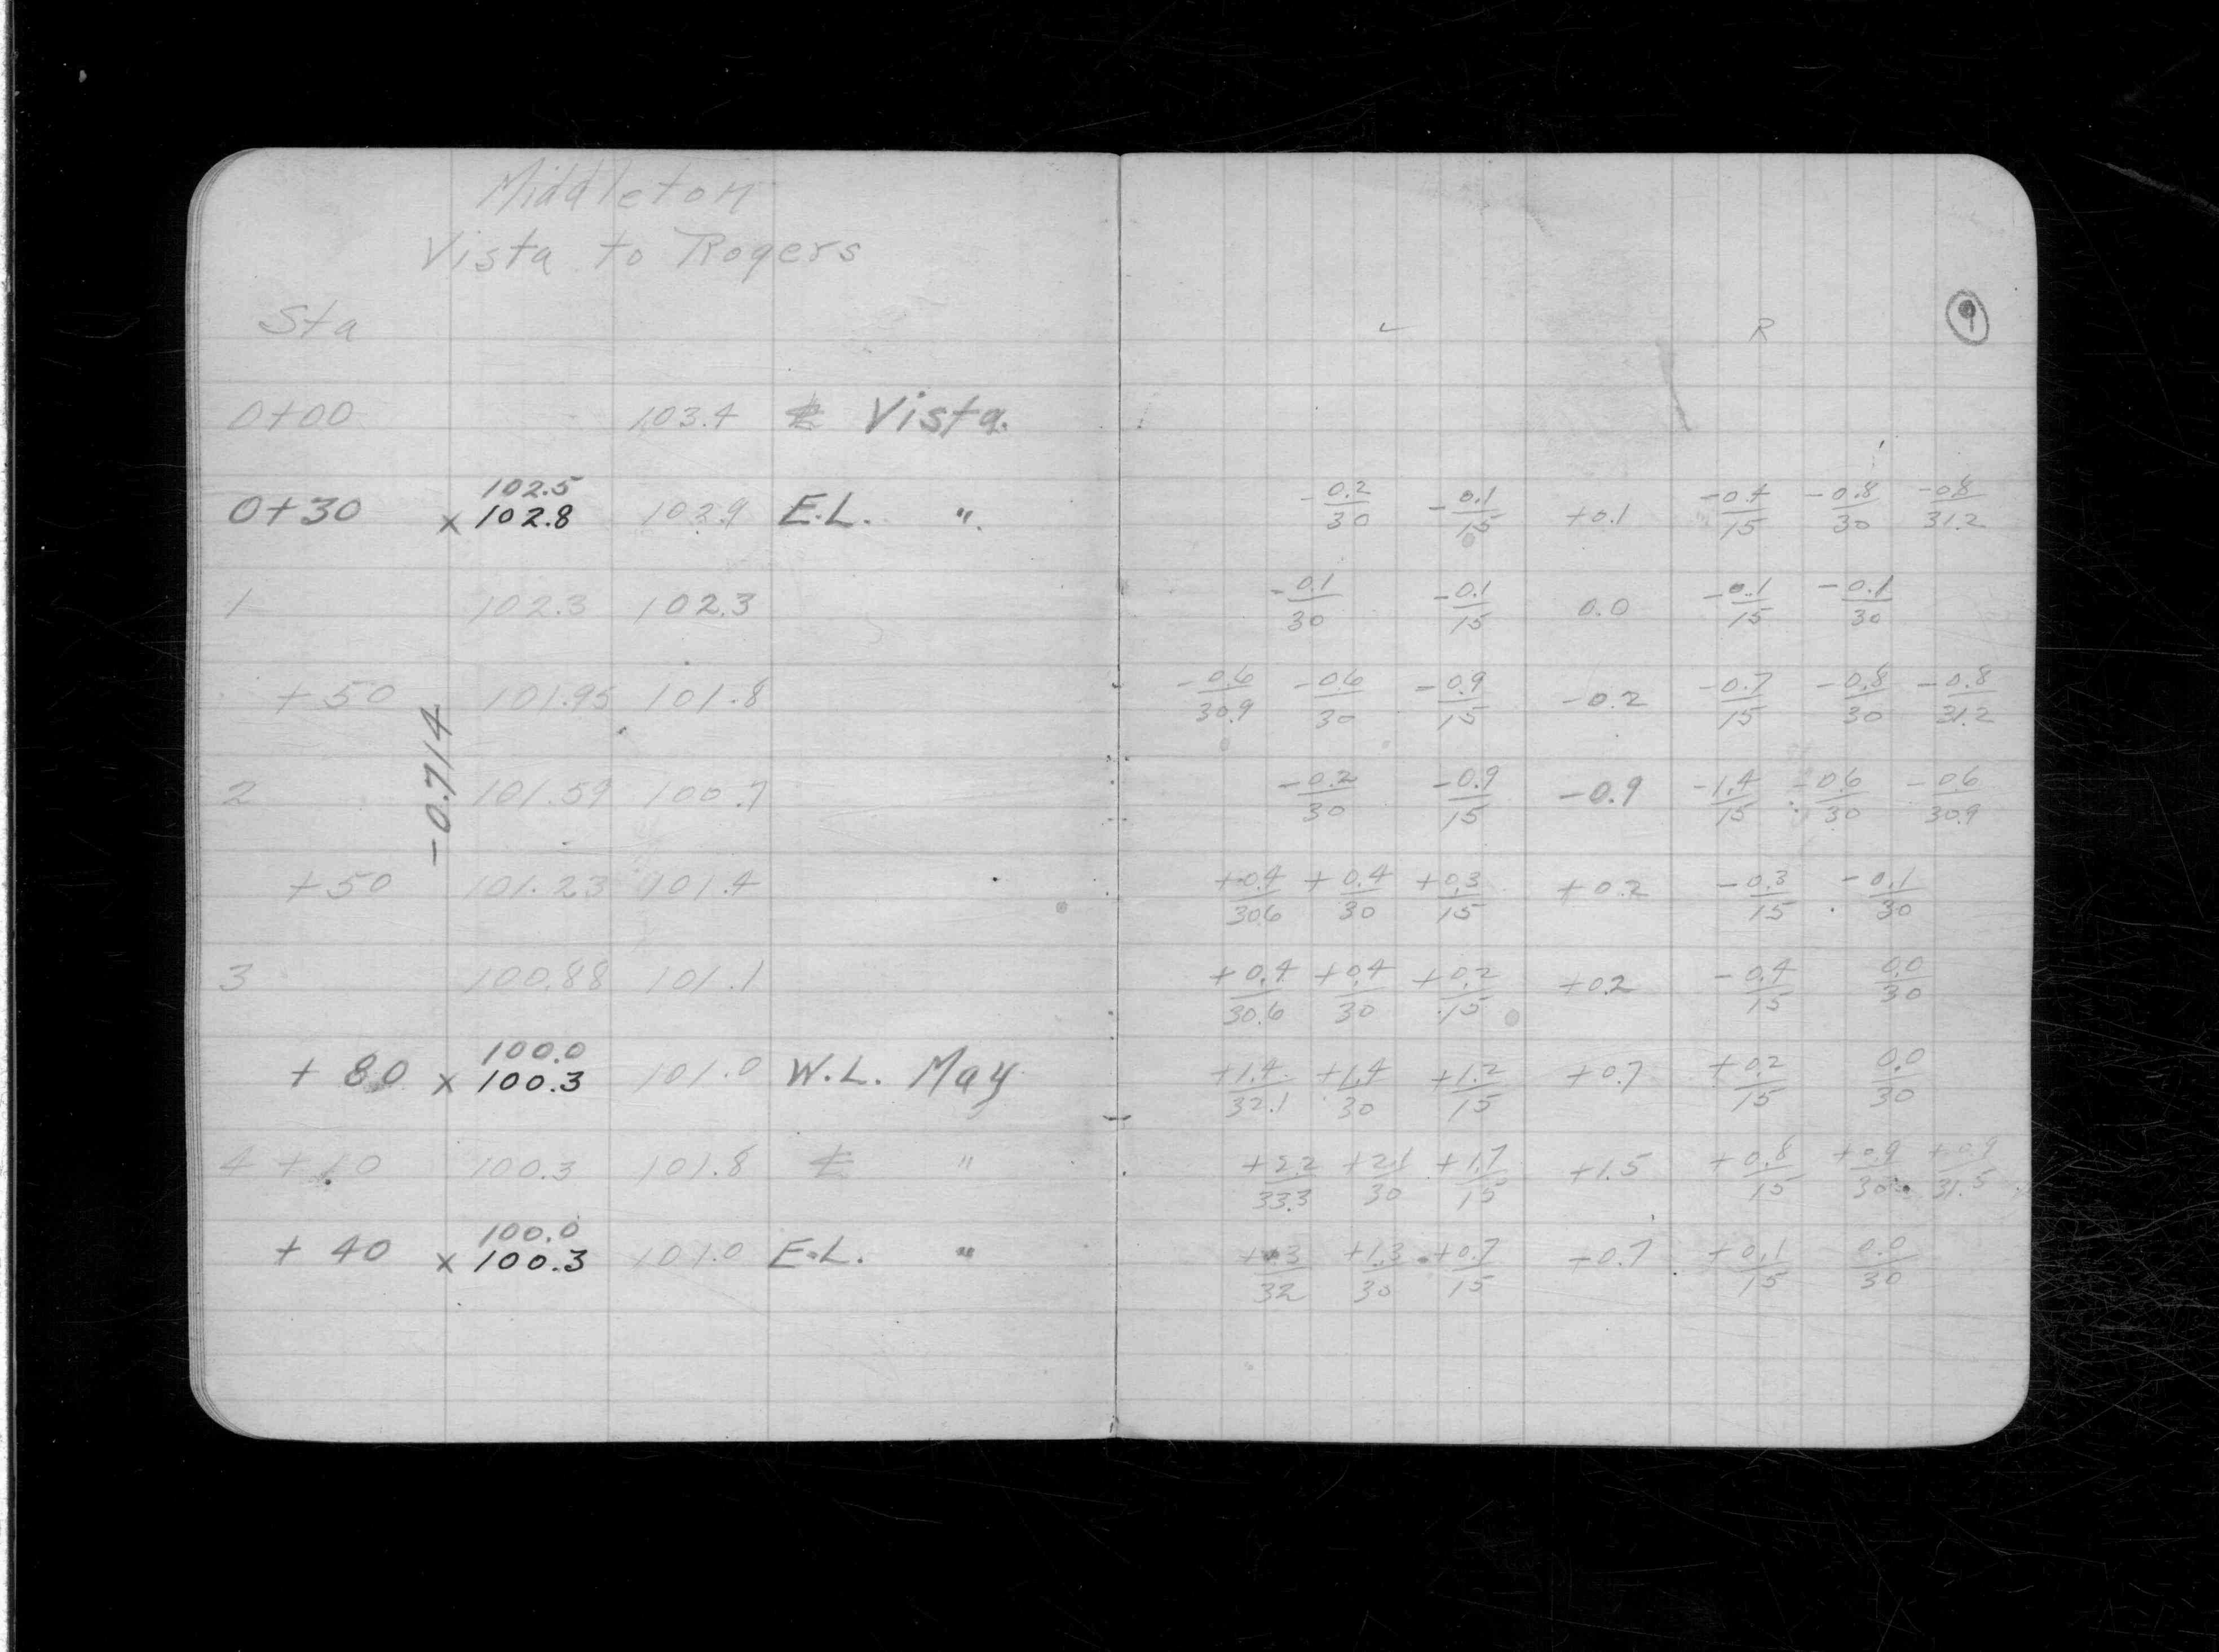 Middleton
Vista to Rogers
Sta
0+00 103.4 ℄ Vista.
102.5
0+30 x 102.8 102.9 E.L. ".
1 102.3 102.3
+50 101.95 101.8
-0.714
2 101.59 100.7
+50 101.23 101.4
3 100.88 101.1
100.0
+ 80 x 100.3 101.0 W.L. May
4 +10 100.3 101.8 ℄ "
100.0
+ 40 x 100.3 101.0 E.L. "
9
L R
-0.2/30 -0.1/15 +0.1 -0.4/15 -0.8/30 -0.8/31.2
-0.1/30 -0.1/15 0.0 -0.1/15 -0.1/30
-0.6/30.9 -0.6/30 -0.9/15 -0.2 -0.7/15 -0.8/30 -0.8/31.2
-0.2/30 -0.9/15 -0.9 -1.4/15 -0.6/30 -0.6/30.9
+0.4/30.6 +0.4/30 +0.3/15 +0.2 -0.3/15 -0.1/30
+0.4/30.6 +0.4/30 +0.2/15 +0.2 -0.4/15 0.0/30
+1.4/32.1 +1.4/30 +1.2/15 +0.7 +0.2/15 0.0/30
+2.2/33.3 +2.1/30 +1.7/15 +1.5 +0.8/15 +0.9/30 +0.9/31.5
+1.3/32 +1.3/30 +0.7/15 +0.7 +0.1/15 0.0/30